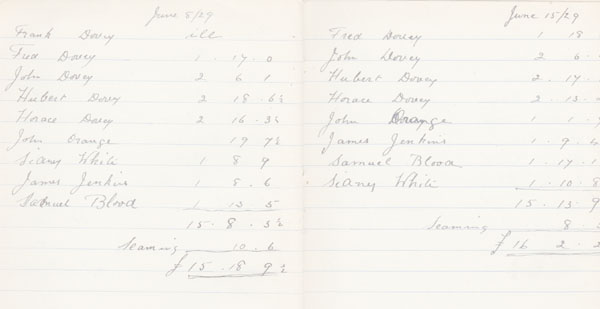 June 8/29
Frank Dovey ill
Fred Dovey 1 . 17 . 0
John Dovey 2 6 1
Hubert Dovey 2 18 . 6½
Horace Dovey 2 16 . 3½
John Orange 19 7½
Sidney White 1 8 9
James Jenkins 1 8 . 6
Samuel Blood 1 13 5
15 . 8 . 3½
Seaming 10 . 6
£ 15 . 18 9½
June 15/29
Fred Dovey 1 18
John Dovey 2 6 .
Hubert Dovey 2 . 17 .
Horace Dovey 2 . 13 .
John Orange 1 1 .
James Jenkins 1 . 9 .
Samuel Blood 1 . 17 .
Sidney White 1 . 10 . 8
15 . 13 . 9
Seaming 8 .
£ 16 2 . 2